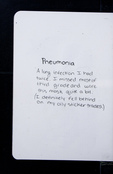 Pneumonia
A lung infection I had
twice. I missed most of
third grade and was
this much quite a bit
(I definitely fell behind
on my lily sticker trades)